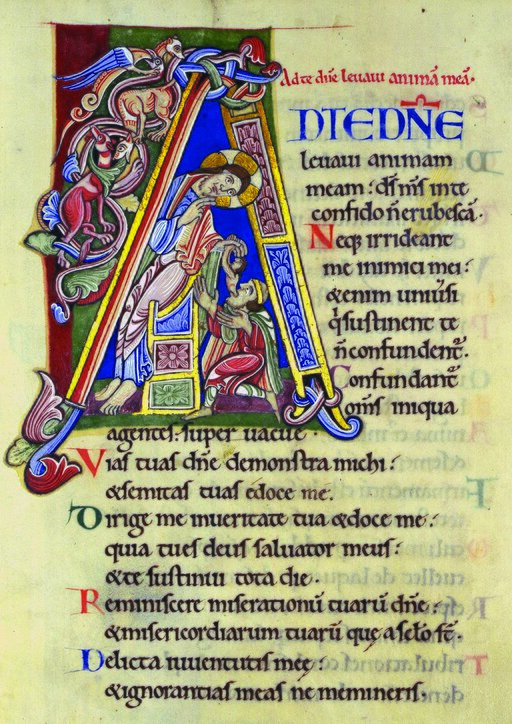 Ad te dñe levavi animā meā.
AD TE DÑE
levavi animam
meam: ds̄ ms̄ in te
confido ñ erubescā.
Neq; irrideant
me inimici mei:
& enim univ̄si
q̄ sustinent te
ñ confundent̄.
Confundant̄
om̄s iniqua
agentes: super vacue.
Vias tuas dñe demonstra michi:
& semitas tuas edoce me.
Dirige me in veritate tua & doce me:
quia tu es deus salvator meus:
& te sustinui tota die.
Reminiscere miserationū tuarū dñe:
& misericordiarum tuarū quę a sc̄lo st̄.
Delicta iuventutis meę:
& ignorantias meas ne memineris.